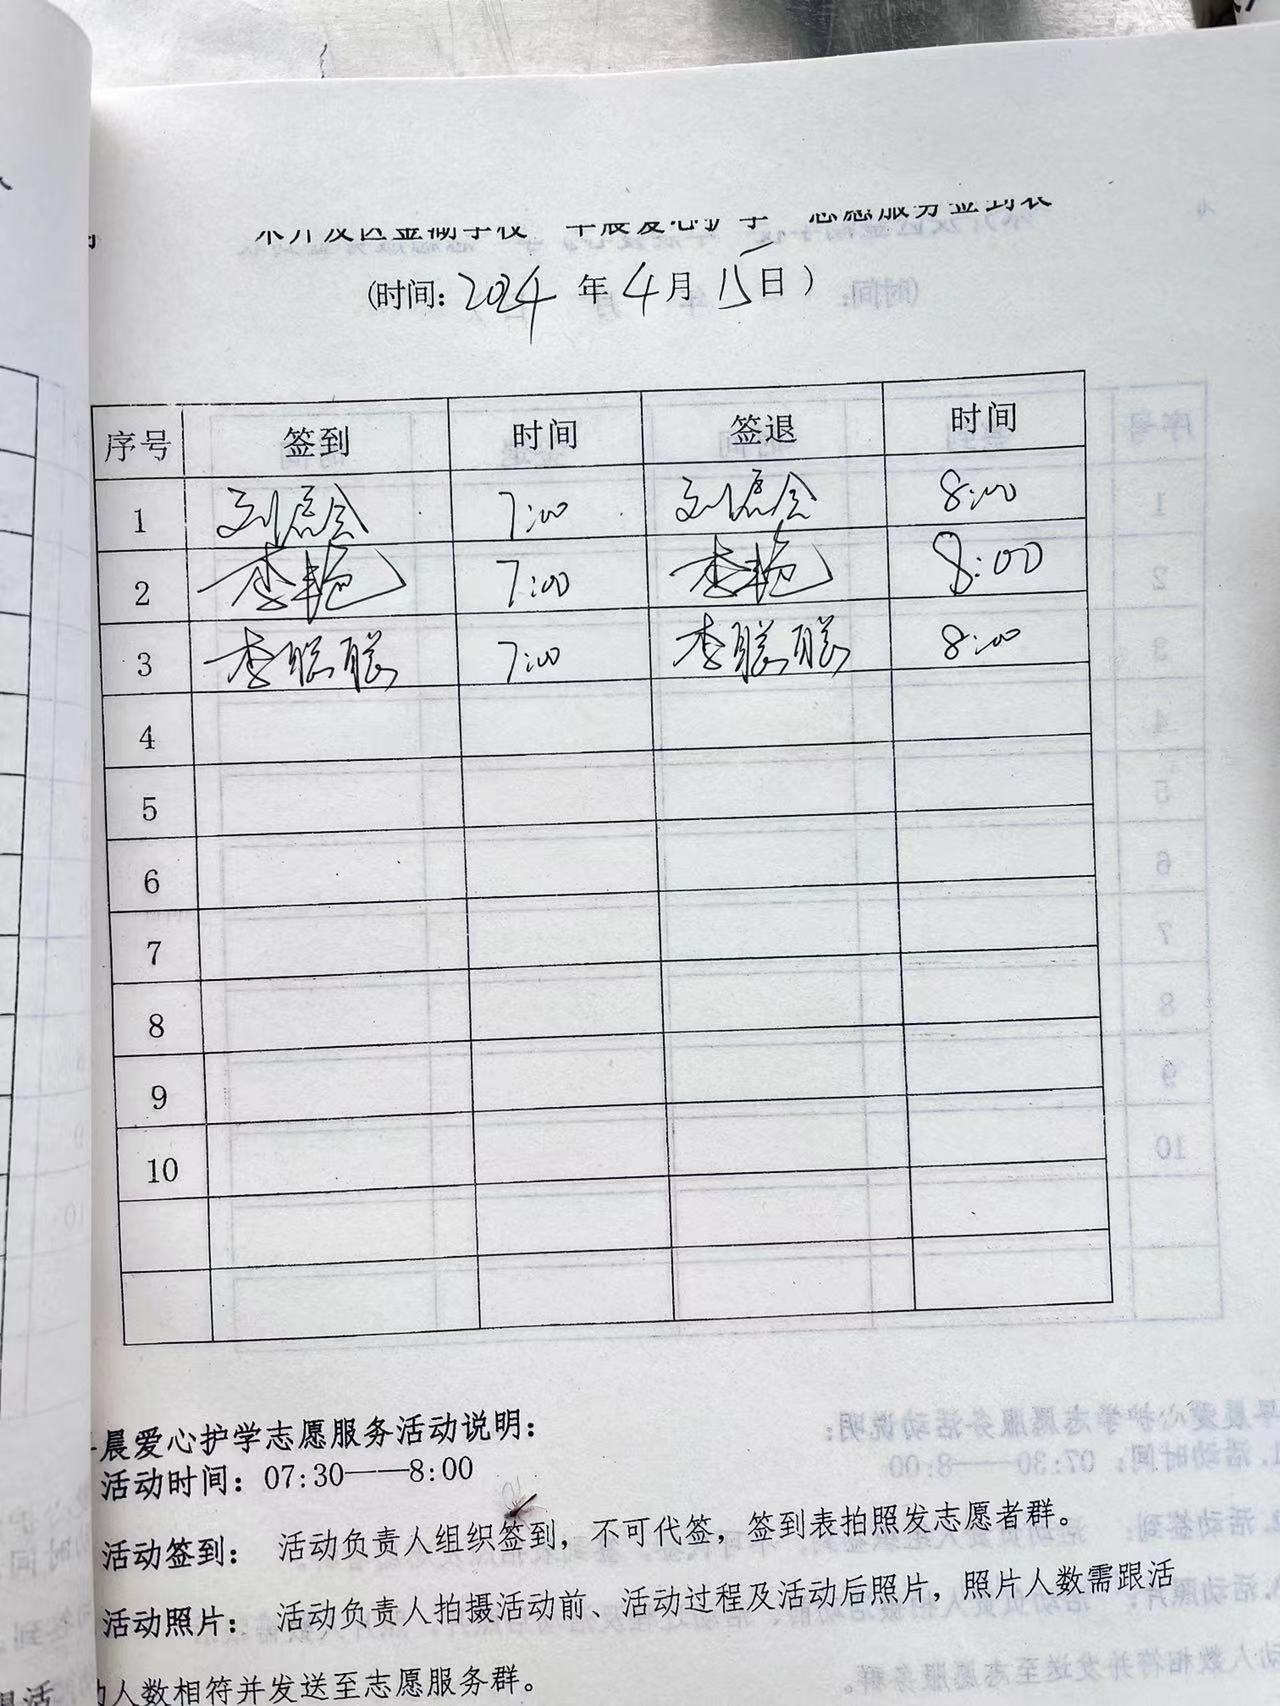 开发区金湖学校“早晨爱心护学”志愿服务签到表
(时间: 2024 年 4 月 15 日 )
序号 签到 时间 签退 时间
1 刘 会 7:00 刘 会 8:00
2 李艳 7:00 李艳 8:00
3 李聪聪 7:00 李聪聪 8:00
4
5
6
7
8
9
10
晨爱心护学志愿服务活动说明:
活动时间: 07:30——8:00
活动签到: 活动负责人组织签到，不可代签，签到表拍照发志愿者群。
活动照片: 活动负责人拍摄活动前、活动过程及活动后照片，照片人数需跟活
人数相符并发送至志愿服务群。